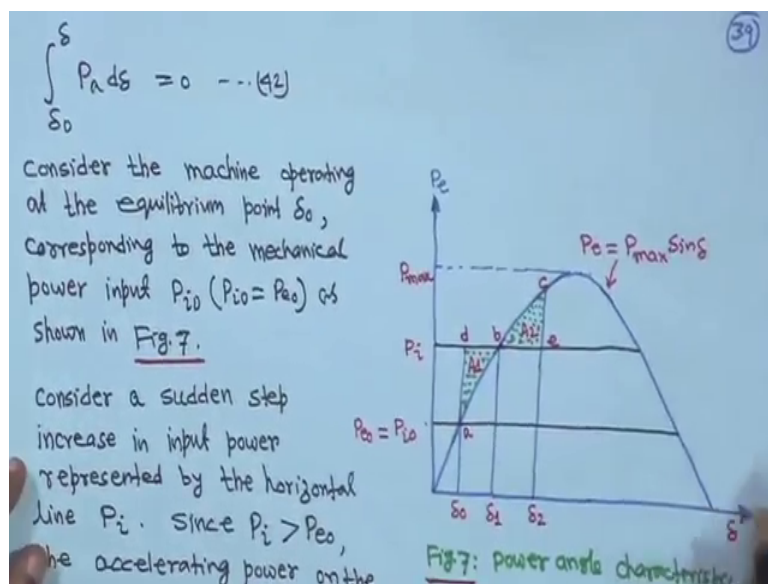 39
∫ δ0 δ Pa dδ = 0 --- (42)
Consider the machine operating
at the equilibrium point δ0,
corresponding to the mechanical
power input Pi0 (Pi0 = Pe0) as
shown in Fig.7.
Consider a sudden step
increase in input power
represented by the horizontal
line Pi. Since Pi > Pe0,
the accelerating power on the
Pe
Pe = Pmax Sinδ
Pmax
c
d b A2 e
Pi
A1
Pe0 = Pi0
a
δ0 δ1 δ2 δ
Fig.7: Power angle characteristic